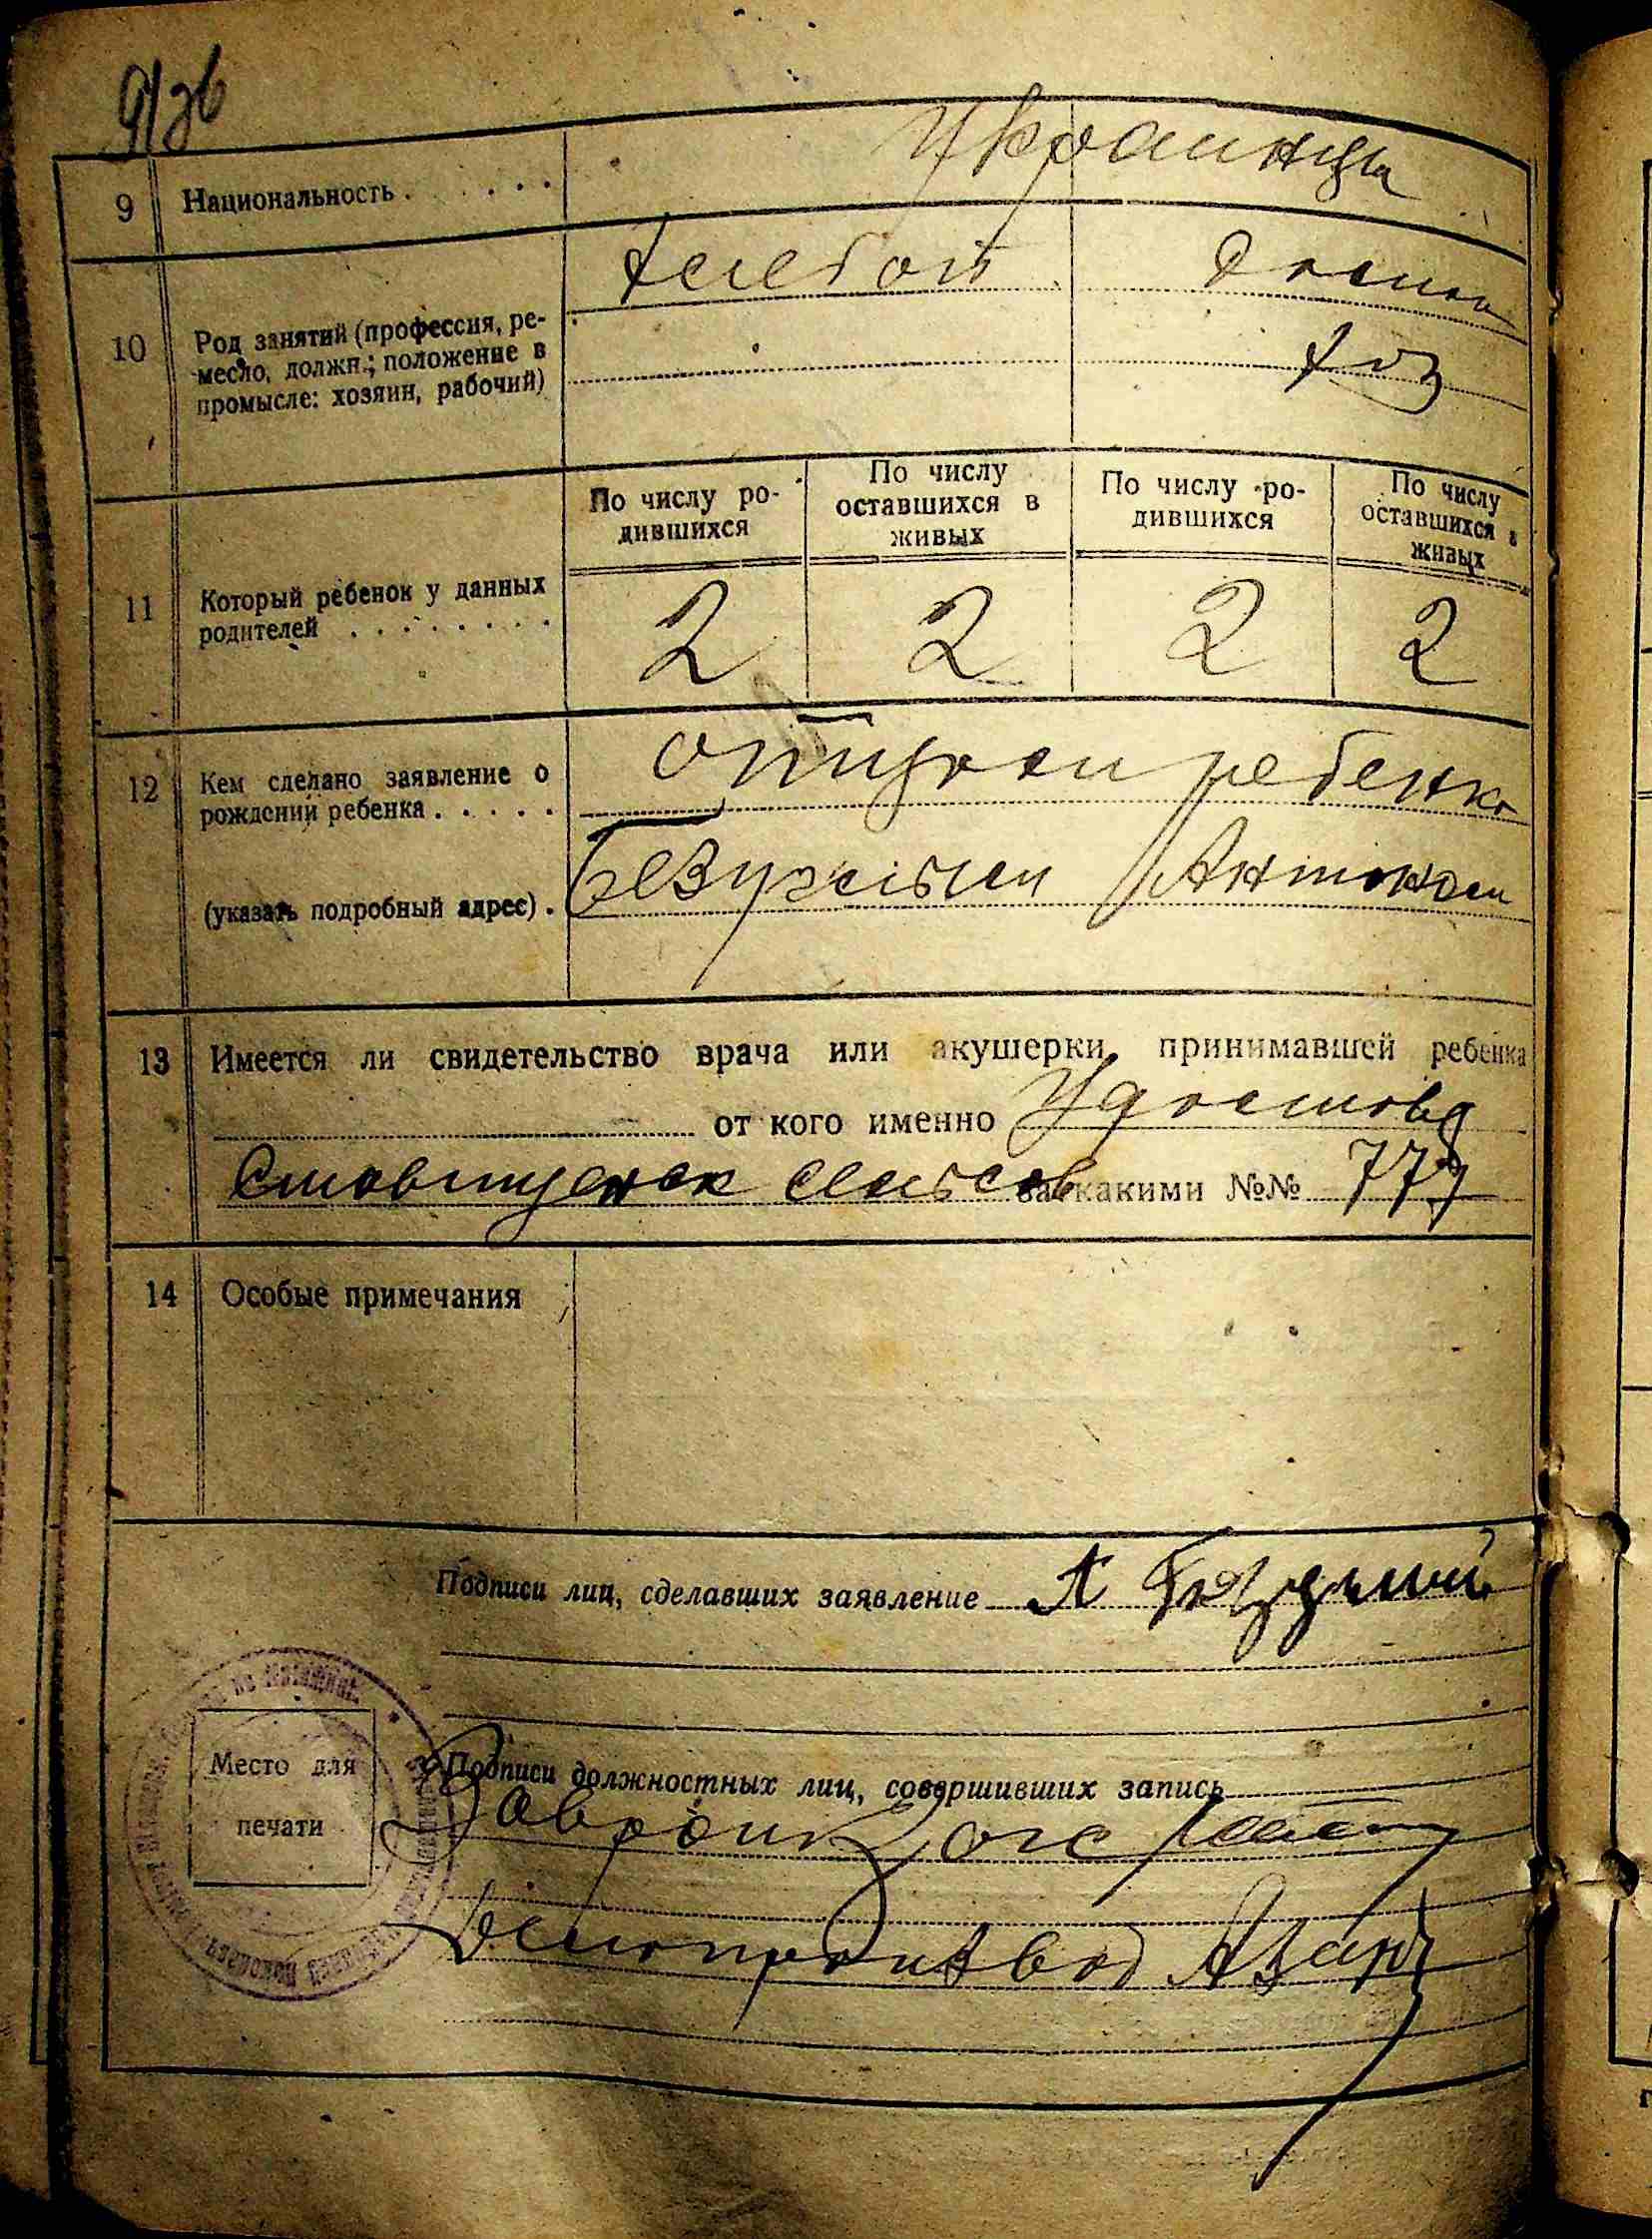 9 Национальность . . . . . . Украинцы
10 Род занятий (профессия, ре-
месло, должн.; положение в
промысле: хозяин, рабочий)
Хлебоп Домаш
хоз
По числу ро-
дившихся
По числу
оставшихся в
живых
По числу ро-
дившихся
По числу
оставшихся в
живых
11 Который ребенок у данных
родителей . . . . . . . .
2 2 2 2
12 Кем сделано заявление о
рождении ребенка . . . . .
отцом ребенка
(указать подробный адрес) .
Антоном
13 Имеется ли свидетельство врача или акушерки, принимавшей ребенка
от кого именно Удостов
за какими №№ 777
14 Особые примечания
Подписи лиц, сделавших заявление А
Место для
печати
Подписи должностных лиц, совершивших запись
Завбюро
Делопроизвод